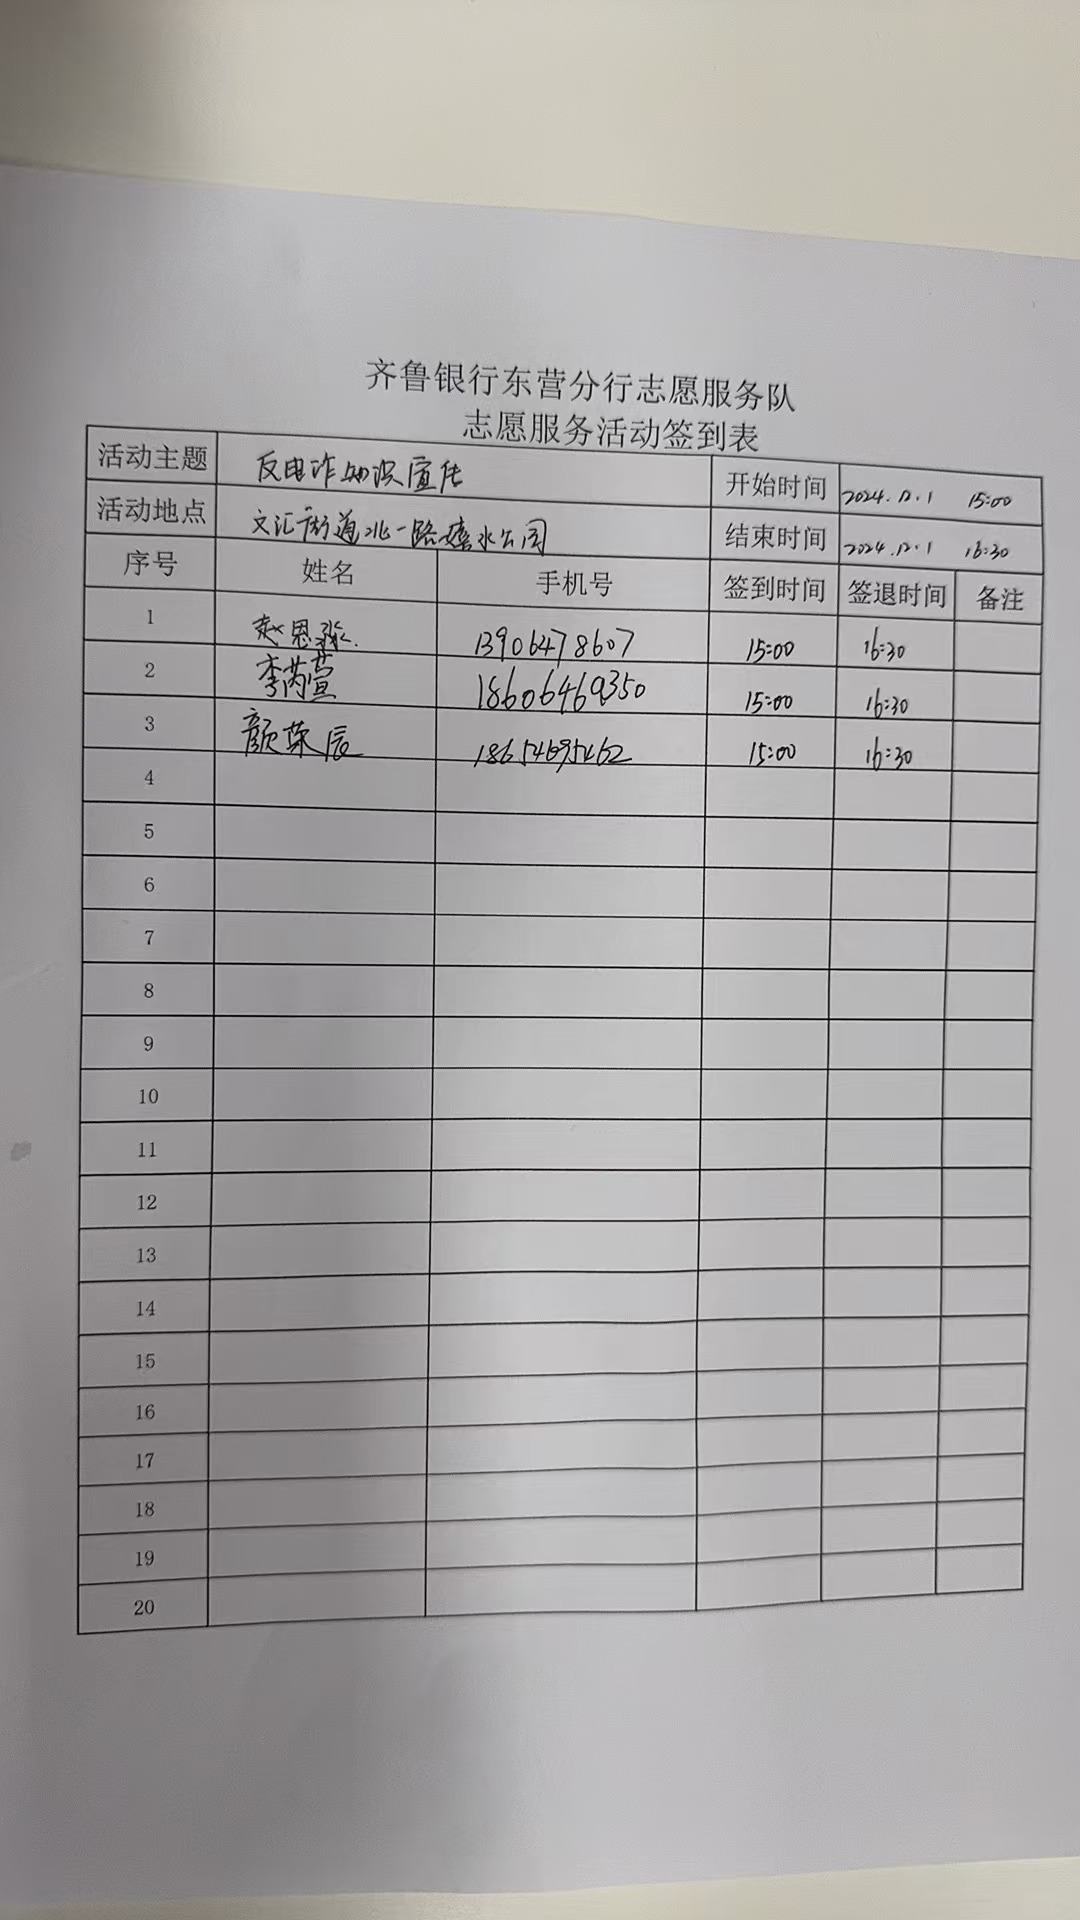 齐鲁银行东营分行志愿服务队
志愿服务活动签到表
活动主题 反电诈知识宣传 开始时间 2024.12.1 15:00
活动地点 文汇街道北一路嬉水公园 结束时间 2024.12.1 16:30
序号 姓名 手机号 签到时间 签退时间 备注
1 赵恩 13906478607 15:00 16:30
2 李芮萱 15:00 16:30
3 颜荣辰 15:00 16:30
4
5
6
7
8
9
10
11
12
13
14
15
16
17
18
19
20